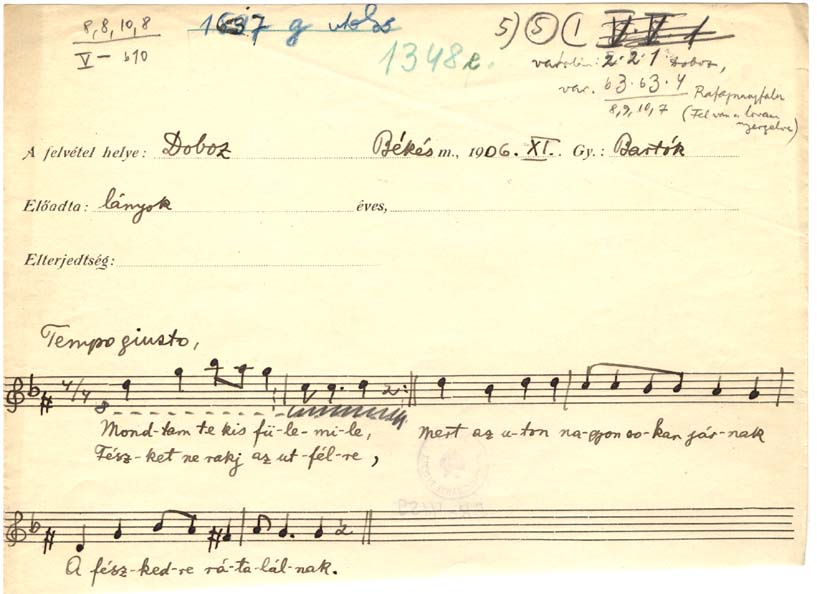 8, 8, 10, 8
V – b10
1637 g utolsó
1348e.
5) ⑤ ( 1 V. V. 1
variáns: 2. 2. 1 Doboz,
var. b3. b3. 4
8, 9, 10, 7
(Fel van a lovam
nyergelve)
A felvétel helye: Doboz Békés m., 1906. XI. Gy.: Bartók
Előadta: lányok éves,
Elterjedtség:
Tempo giusto,
4/4
8
Mond-tam te kis fü-le-mi-le, mert az u-ton na-gyon so-kan jár-nak
Fész-ket ne rakj az ut-fél-re,
A fész-ked-re rá-ta-lál-nak.